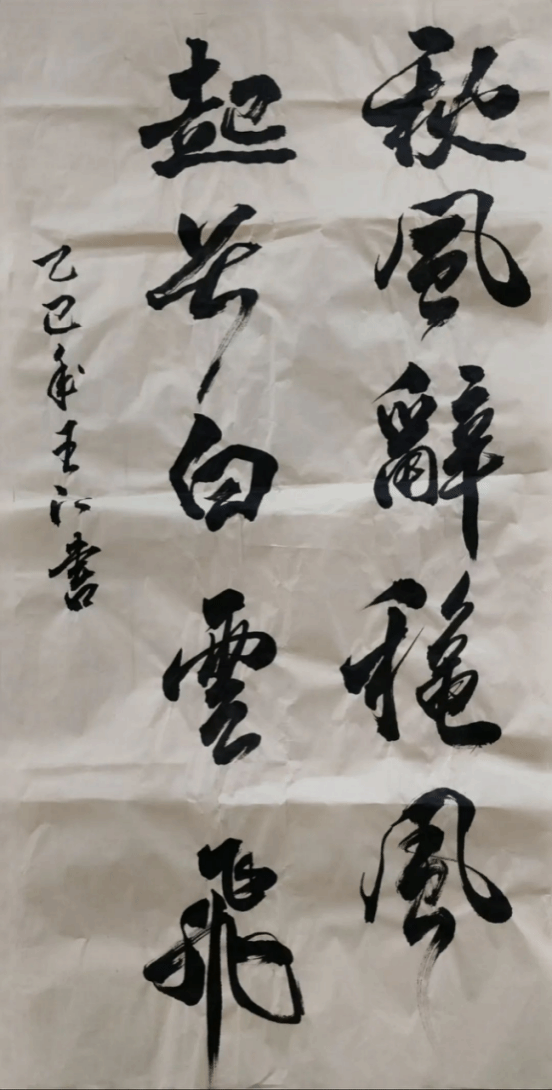 秋風辭穐風
起兮白雲飛
乙巳年王江書